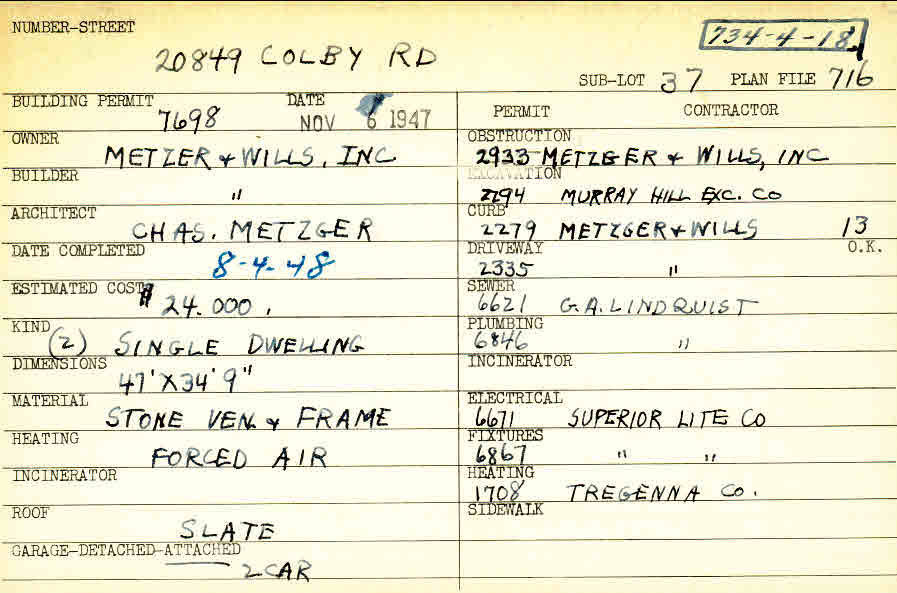 NUMBER-STREET
20849 COLBY RD
734-4-18
SUB-LOT 37 PLAN FILE 716
BUILDING PERMIT 7698
DATE NOV 6 1947
OWNER
METZER & WILLS, INC
BUILDER
"
ARCHITECT
CHAS. METZGER
DATE COMPLETED
8-4-48
ESTIMATED COST
$24.000.
KIND
(2) SINGLE DWELLING
DIMENSIONS
47'X34'9"
MATERIAL
STONE VEN. & FRAME
HEATING
FORCED AIR
INCINERATOR
ROOF
SLATE
GARAGE-DETACHED-ATTACHED
2 CAR
PERMIT CONTRACTOR
OBSTRUCTION
2933 METZGER & WILLS, INC
EXCAVATION
2294 MURRAY HILL EXC. CO
CURB
2279 METZGER & WILLS 13
DRIVEWAY O.K.
2335 "
SEWER
6621 G.A. LINDQUIST
PLUMBING
6846 "
INCINERATOR
ELECTRICAL
6671 SUPERIOR LITE CO
FIXTURES
6867 " "
HEATING
1708 TREGENNA CO.
SIDEWALK